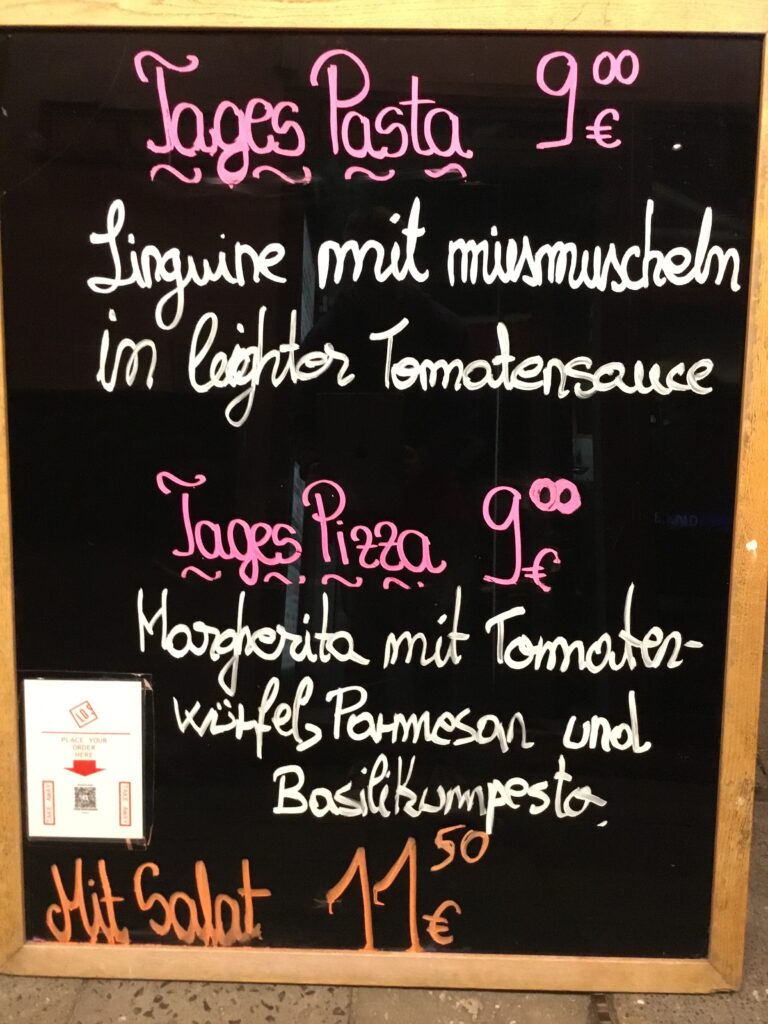 Tages Pasta 9 00 €
Linguine mit miesmuscheln
in leighter Tomatensauce
Tages Pizza 9 00 €
Margherita mit Tomaten-
würfel, Parmesan und
Basilikumpesto.
PLACE YOUR
ORDER
HERE
TAKE AWAY
Mit Salat 11 50 €